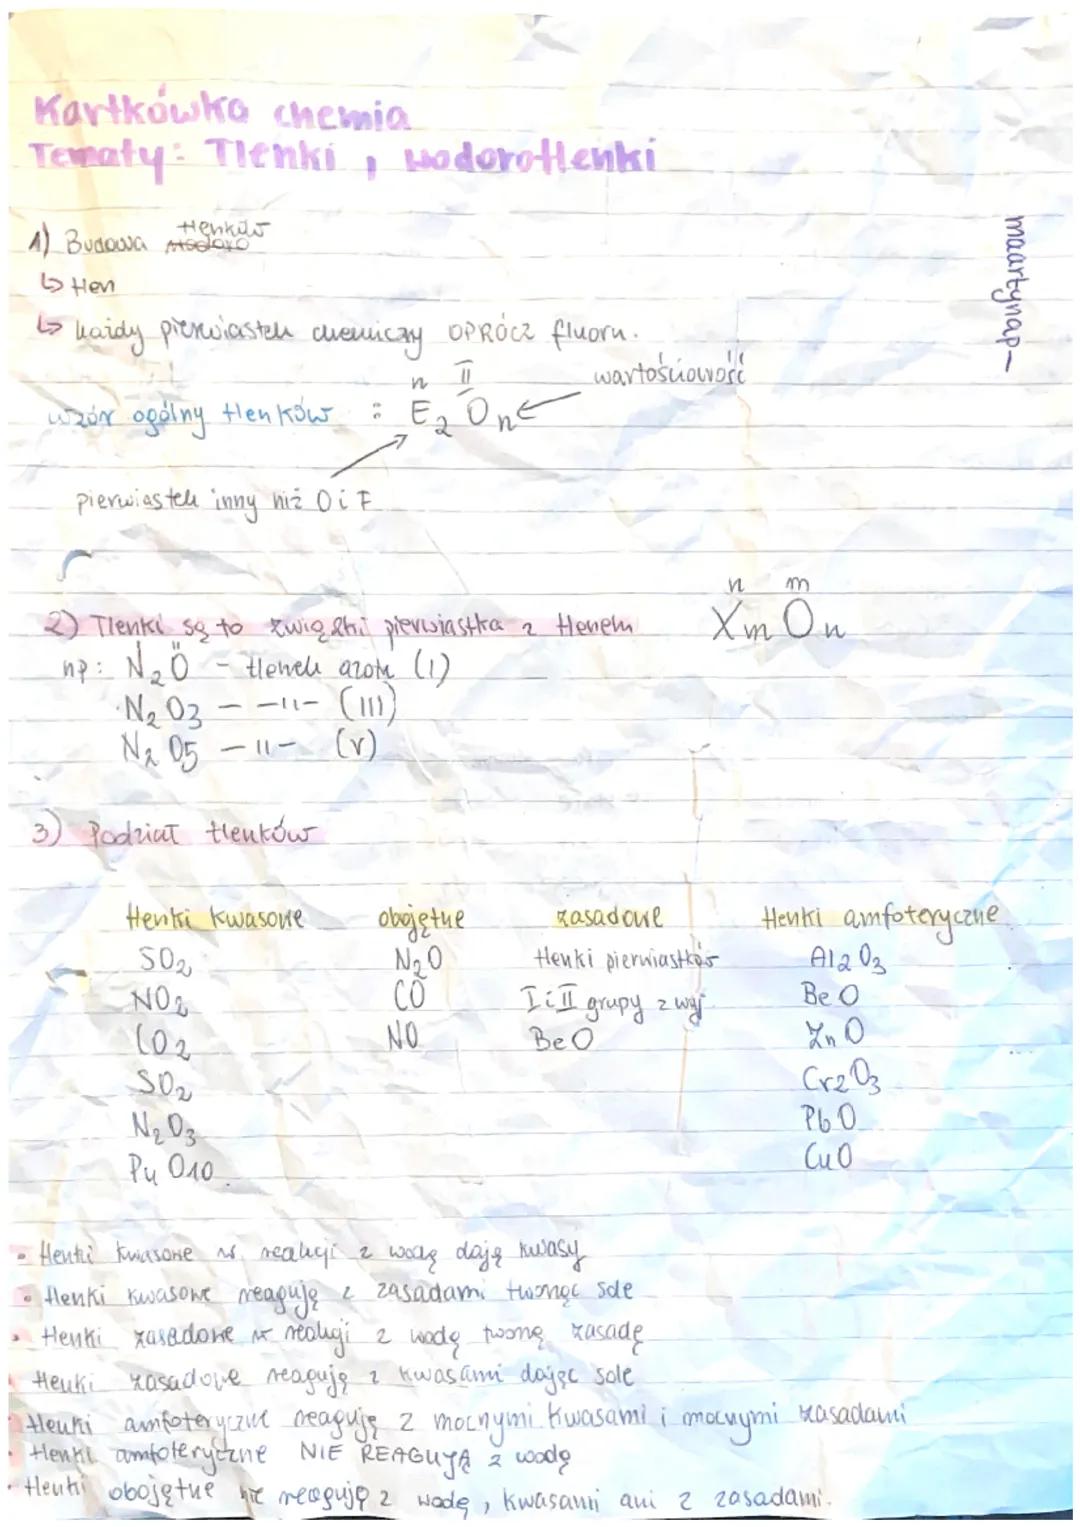 Kartkówka chemia
Tematy: Tlenki, wodorotlenki
maartynap-
1) Budowa tlenków
↳ tlen
↳ każdy pierwiastek chemiczny OPRÓCZ fluoru.
n II wartościowość
wzór ogólny tlenków : E2 On
pierwiastek inny niż O i F
n m
2) Tlenki są to związki pierwiastka z tlenem Xm On
np: N2O - tlenek azotu (I)
N2O3 - -11- (III)
N2O5 -11- (V)
3) Podział tlenków
tlenki kwasowe obojętne zasadowe tlenki amfoteryczne
SO2 N2O tlenki pierwiastków Al2O3
NO2 CO I i II grupy z wyj BeO
CO2 NO BeO ZnO
SO2 Cr2O3
N2O3 PbO
P4O10 CuO
• tlenki kwasowe w reakcji z wodą dają kwasy
• tlenki kwasowe reagują z zasadami tworząc sole
• tlenki zasadowe w reakcji z wodą tworzą zasadę
tlenki zasadowe reagują z kwasami dając sole
• tlenki amfoteryczne reagują z mocnymi kwasami i mocnymi zasadami
• tlenki amfoteryczne NIE REAGUJĄ z wodą
• tlenki obojętne nie reagują z wodą, kwasami ani z zasadami.